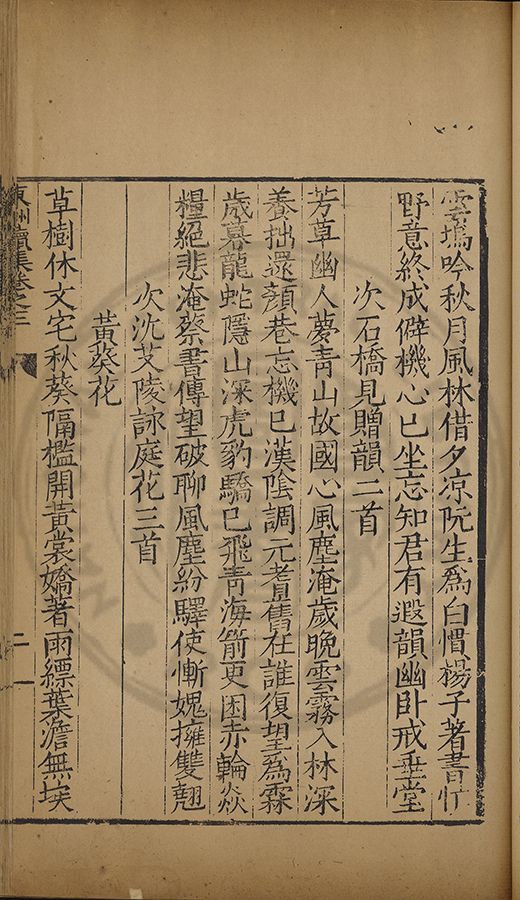 雲塢吟秋月風林借夕凉阮生爲白㦬楊子著書忙
野意終成僻機心已坐忘知君有遐韻幽卧戒垂堂
次石橋見贈韻二首
芳草幽人夢靑山故國心風塵淹歲晩雲霧入林深
養拙還顔巷忘機已漢隂調元耆舊在誰復望爲霖
歲暮龍蛇隱山深虎豹驕已飛靑海箭更困赤輪焱
糧絕悲淹蔡書傳望破聊風塵紛驛使慚媿擁雙翹
次沈艾陵詠庭花三首
黃葵花
草樹休文宅秋葵隔檻開黃裳嬌著雨縹葉澹無埃
東洲續集卷之三
二